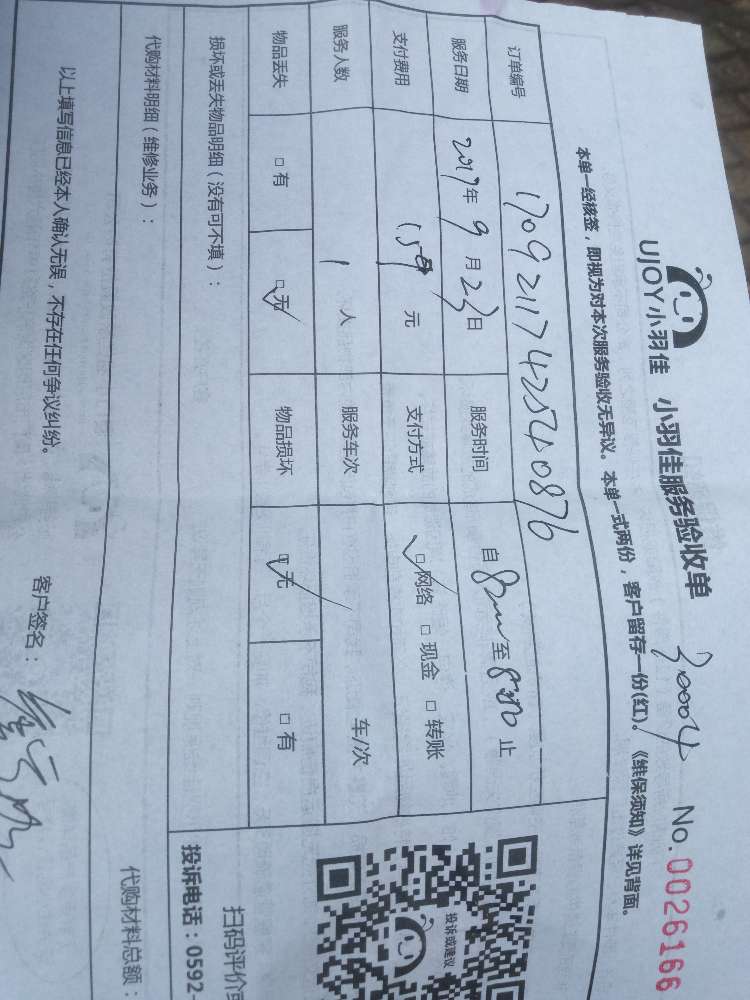 UJOY小羽佳 小羽佳服务验收单 30004 No.0026166
本单一经核签，即视为对本次服务验收无异议。本单一式两份，客户留存一份(红)。《维保须知》详见背面。
订单编号 17092117425540876
服务日期 2017年 9 月 23 日 服务时间 自 至 止
支付费用 元 支付方式 □网络 □现金 □转账
服务人数 1 人 服务车次 车/次
物品丢失 □有 □无 物品损坏 □无 □有
损坏或丢失物品明细（没有可不填）：
代购材料明细（维修业务）：
代购材料总额：
以上填写信息已经本人确认无误，不存在任何争议纠纷。 客户签名：
投诉或建议
扫码评价
投诉电话：0592-